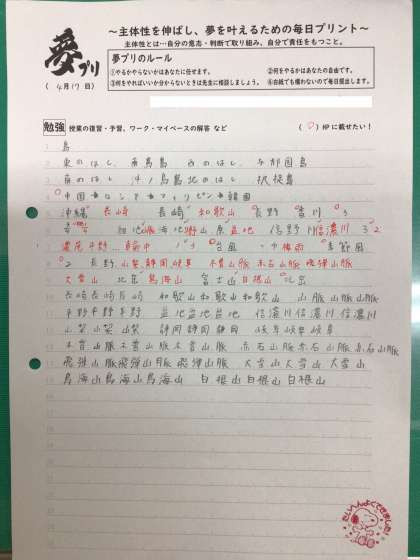 ～主体性を伸ばし、夢を叶えるための毎日プリント～
主体性とは…自分の意志・判断で取り組み、自分で責任をもつこと。
夢プリ
夢プリのルール
①やるかやらないかはあなたに任せます。 ②何をやるかはあなたの自由です。
③何をやればいいか分からないときは先生に相談しましょう。 ④白紙でも構わないので毎日提出します。
（ 4月17日）
勉強 授業の復習・予習、ワーク・マイペースの解答 など
（ ○ ）HPに載せたい！
1 島
2 東のはし、南鳥島 西のはし、与那国島
3 南のはし 沖ノ鳥島 北のはし、択捉島
4 中国 インド フィリピン 韓国
5 沖縄 長崎 長崎 和歌山 長野 香川 3
6 盆地 信濃川 32
7 濃尾平野 台風 梅雨 季節風
8 2 長野 山梨 静岡 岐阜 木曽山脈 赤石山脈 飛驒山脈
9 大雪山 鳥海山 富士山 白根山
10 長崎長崎長崎 和歌山和歌山和歌山 山脈山脈山脈
11 平野平野平野 盆地盆地盆地 信濃川信濃川信濃川
12 山梨山梨山梨 静岡静岡静岡 岐阜岐阜岐阜
13 木曽山脈木曽山脈木曽山脈 赤石山脈赤石山脈赤石山脈
14 飛驒山脈飛驒山脈飛驒山脈 大雪山大雪山大雪山
15 鳥海山鳥海山鳥海山 白根山白根山白根山
たいへんよくできました